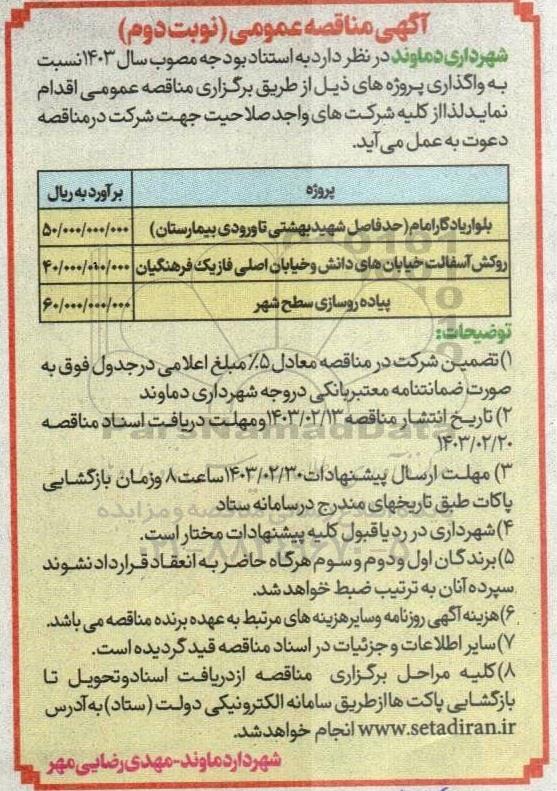 آگهی مناقصه عمومی (نوبت دوم)
شهرداری دماوند در نظر دارد به استناد بودجه مصوب سال ۱۴۰۳ نسبت
به واگذاری پروژه های ذیل از طریق برگزاری مناقصه عمومی اقدام
نماید لذا از کلیه شرکت های واجد صلاحیت جهت شرکت در مناقصه
دعوت به عمل می آید.
پروژه برآورد به ریال
بلوار یادگار امام (حد فاصل شهید بهشتی تا ورودی بیمارستان) ۵۰/۰۰۰/۰۰۰/۰۰۰
روکش آسفالت خیابان های دانش و خیابان اصلی فاز یک فرهنگیان ۴۰/۰۰۰/۰۱۰/۰۰۰
پیاده روسازی سطح شهر ۶۰/۰۰۰/۰۰۰/۰۰۰
توضیحات:
۱) تضمین شرکت در مناقصه معادل ۵٪ مبلغ اعلامی در جدول فوق به
صورت ضمانتنامه معتبر بانکی در وجه شهرداری دماوند
۲) تاریخ انتشار مناقصه ۱۴۰۳/۰۲/۱۳ و مهلت دریافت اسناد مناقصه
۱۴۰۳/۰۲/۲۰
۳) مهلت ارسال پیشنهادات ۱۴۰۳/۰۲/۳۰ ساعت ۸ و زمان بازگشایی
پاکات طبق تاریخهای مندرج در سامانه ستاد
۴) شهرداری در رد یا قبول کلیه پیشنهادات مختار است.
۵) برندگان اول و دوم و سوم هرگاه حاضر به انعقاد قرارداد نشوند
سپرده آنان به ترتیب ضبط خواهد شد.
۶) هزینه آگهی روزنامه و سایر هزینه های مرتبط به عهده برنده مناقصه می باشد.
۷) سایر اطلاعات و جزئیات در اسناد مناقصه قید گردیده است.
۸) کلیه مراحل برگزاری مناقصه از دریافت اسناد و تحویل تا
بازگشایی پاکت ها از طریق سامانه الکترونیکی دولت (ستاد) به آدرس
www.setadiran.ir انجام خواهد شد.
شهردار دماوند-مهدی رضایی مهر
ParsNamadData